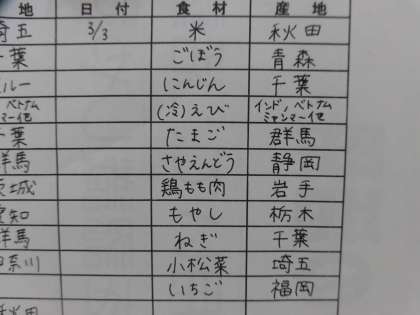 地 日付 食材 産地
埼玉 3/3 米 秋田
千葉 ごぼう 青森
ルー にんじん 千葉
ベトナム (冷)えび インド、ベトナム
ミャンマー他
千葉 たまご 群馬
群馬 さやえんどう 静岡
茨城 鶏もも肉 岩手
愛知 もやし 栃木
群馬 ねぎ 千葉
神奈川 小松菜 埼玉
いちご 福岡
秋田